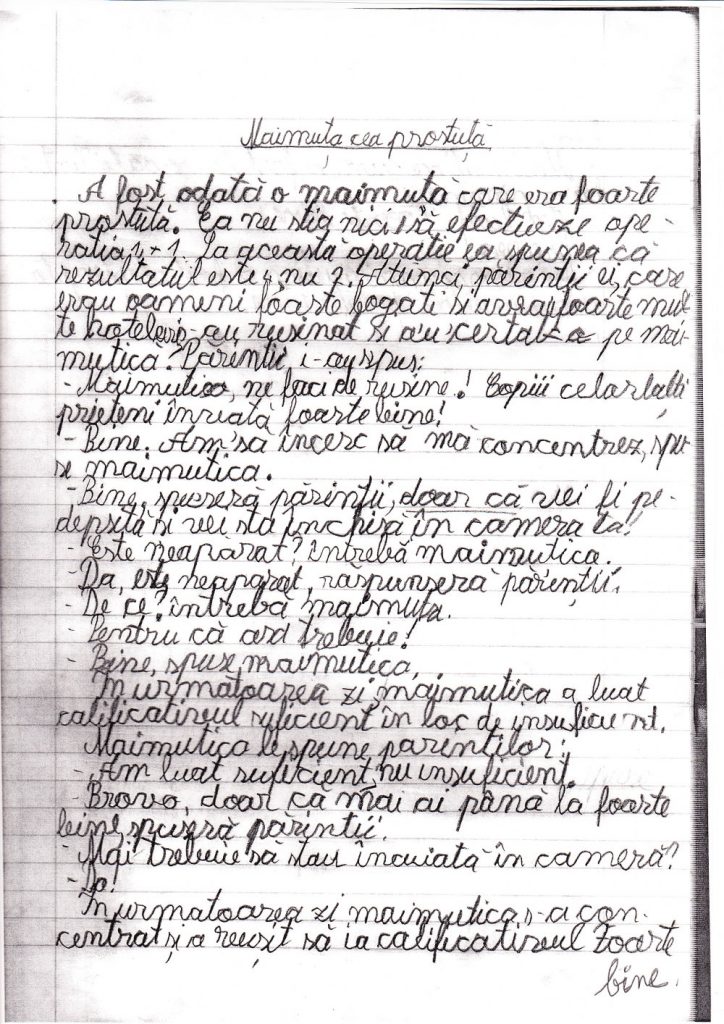 Maimuța cea prostuță
A fost odată o maimuță care era foarte
prostuță. Ea nu știa nici să efectueze ope-
rația 1+1. La această operație ea spunea că
rezultatul este 1 nu 2. Atunci părinții ei, care
erau oameni foarte bogați și aveau foarte mul-
te hoteluri s-au rușinat și au certat-o pe mai-
muțica. Părinții i-au spus:
- Maimuțico, ne faci de rușine! Copiii celorlalți
prieteni învață foarte bine!
- Bine. Am să încerc să mă concentrez, spu-
se maimuțica.
- Bine, spuseră părinții, doar că vei fi pe-
depsită și vei sta închisă în camera ta!
- Este neapărat? întrebă maimuțica.
- Da, este neapărat, răspunseră părinții.
- De ce? întrebă maimuța.
- Pentru că așa trebuie!
- Bine, spuse maimuțica.
În următoarea zi, maimuțica a luat
calificativul suficient în loc de insuficient.
Maimuțica le spune părinților:
- Am luat suficient, nu insuficient.
- Bravo, doar că mai ai până la foarte
bine, spuseră părinții.
- Mai trebuie să stau încuiată în cameră?
- Da!
În următoarea zi maimuțica s-a con-
centrat și a reușit să ia calificativul foarte
bine.